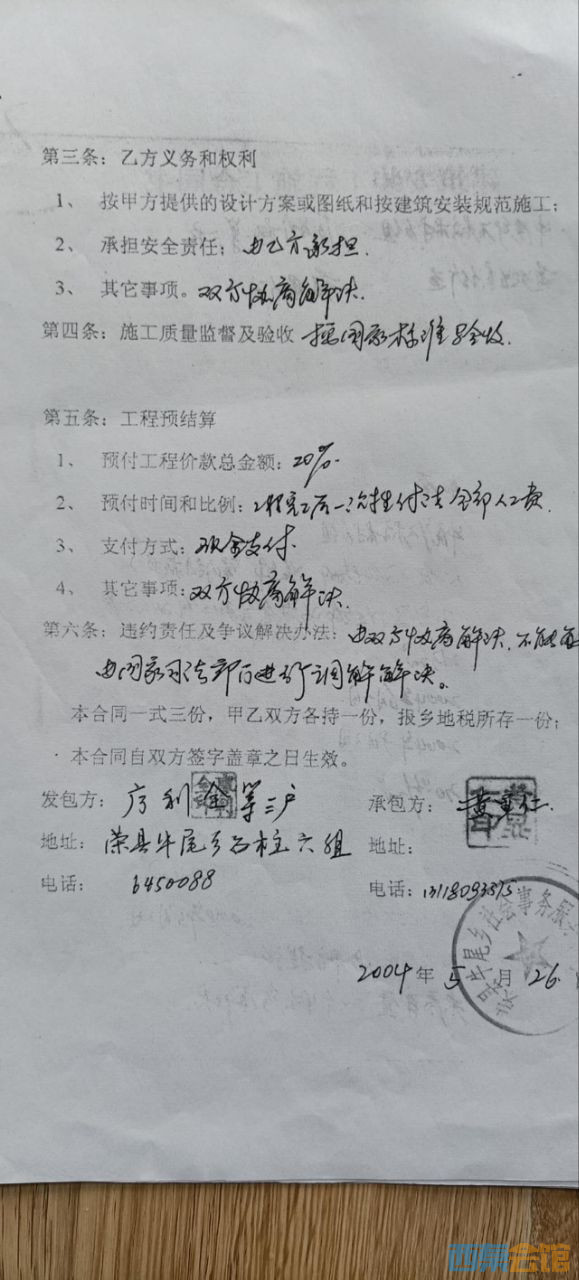 第三条：乙方义务和权利
1、 按甲方提供的设计方案或图纸和按建筑安装规范施工；
2、 承担安全责任；由乙方承担.
3、 其它事项。双方协商解决.
第四条：施工质量监督及验收 按国家标准验收.
第五条：工程预结算
1、 预付工程价款总金额：20%.
2、 预付时间和比例：工程完工后一次性付清全部人工费.
3、 支付方式：现金支付.
4、 其它事项：双方协商解决.
第六条：违约责任及争议解决办法：由双方协商解决.不能
由国家司法部门进行调解解决。
本合同一式三份，甲乙双方各持一份，报乡地税所存一份；
本合同自双方签字盖章之日生效。
发包方： 利金等三户 承包方：黄
地址：荣县牛尾乡石柱六组 地址：
电话： 6450088 电话：
2004年5月26
牛尾乡社会事务服
西票会馆